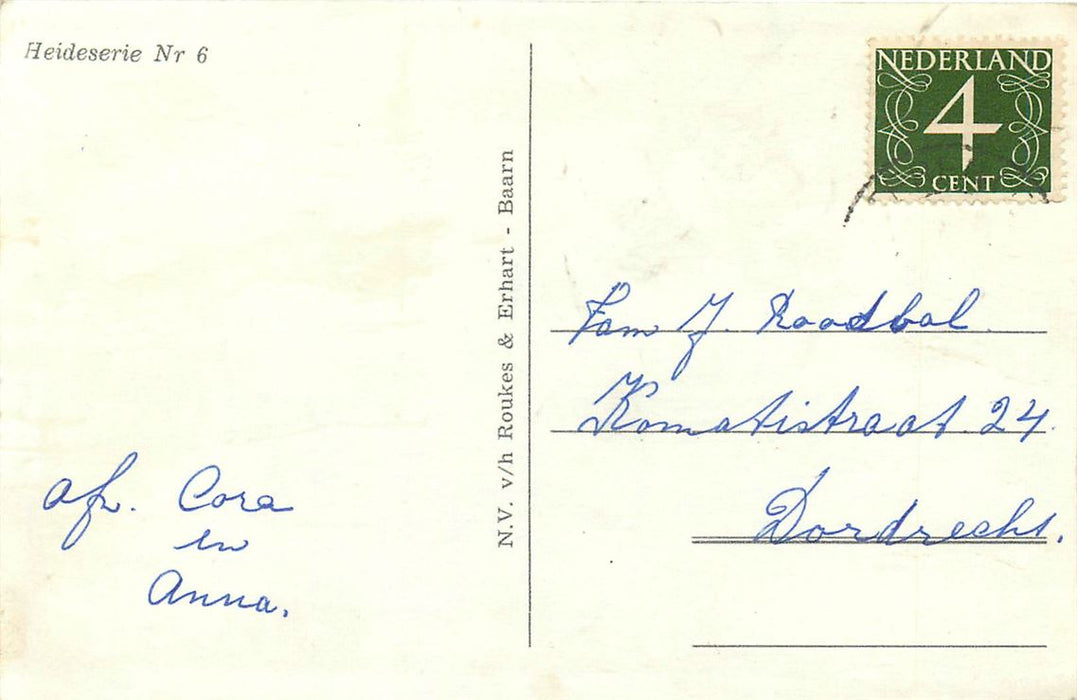 Heideserie Nr 6
N.V. v/h Roukes & Erhart - Baarn
NEDERLAND
4
CENT
Fam J. Roodbol.
Komatistraat 24.
Dordrecht.
afz. Cora
en
Anna.